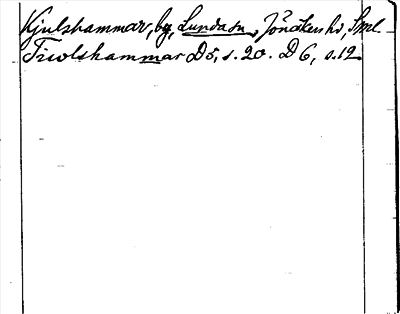 Kjulshammar, by, Lunda sn, Jönåkers hd, Sml.
Tiwlshammar D5, s. 20. D 6, s. 12